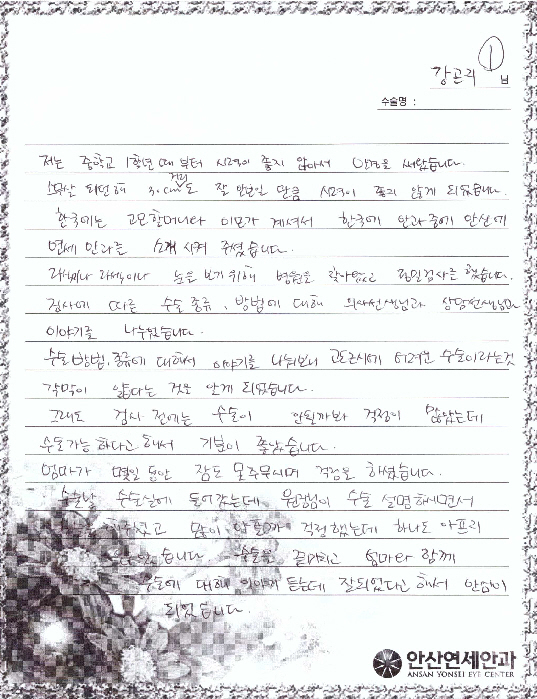 강곤리 님
수술명 :
저는 중학교 1학년 때 부터 시력이 좋지 않아서 안경을 새왔습니다.
거리
30cm도 잘 안보일 만큼 시력이 좋지 않게 되었습니다.
한국에는 고모할머니나 이모가 계셔서 한국에 안과중에 안산에
연세 안과를 소개 시켜 주셨습니다.
라식이나 라섹이나 눈을 보기 위해 병원을 찾아왔고 정밀검사를 했습니다.
검사에 따른 수술 종류, 방법에 대해 의사선생님과 상담선생님과
이야기를 나누었습니다.
수술 방법, 종류에 대해서 이야기를 나눠보니 고도근시에 어려운 수술이라는것
각막이 얇다는 것을 알게 되었습니다.
그래도 검사 전에는 수술이 안될까봐 걱정이 많았는데
수술가능 하다고 해서 기분이 좋았습니다.
엄마가 몇일 동안 잠도 못주무시며 걱정을 하셨습니다.
수술날 수술실에 들어갔는데 원장님이 수술 설명하시면서
해주셨고 많이 아플까 걱정했는데 하나도 아프지
않았습니다. 수술을 끝마치고 엄마와 함께
수술에 대해 이야기 듣는데 잘되었다고 해서 안심이
되었습니다.
안산연세안과
ANSAN YONSEI EYE CENTER